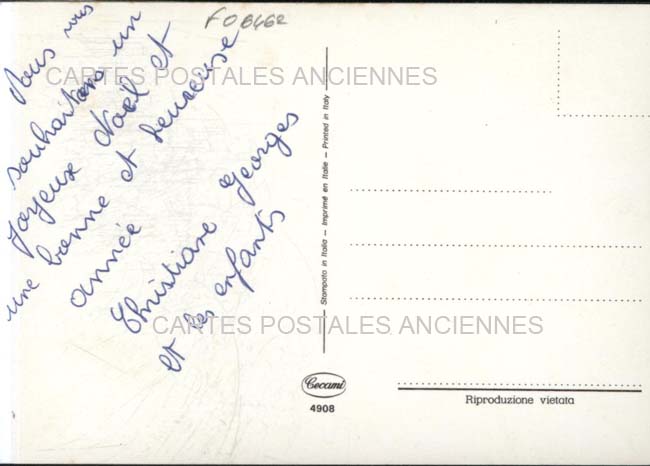 F06462
Nous vous
souhaitons un
Joyeux Noël et
une bonne et heureuse
année
Christiane Georges
et les enfants
CARTES POSTALES ANCIENNES
CARTES POSTALES ANCIENNES
Stampato in Italia — Imprimé en Italie — Printed in Italy
Cecami
4908
Riproduzione vietata